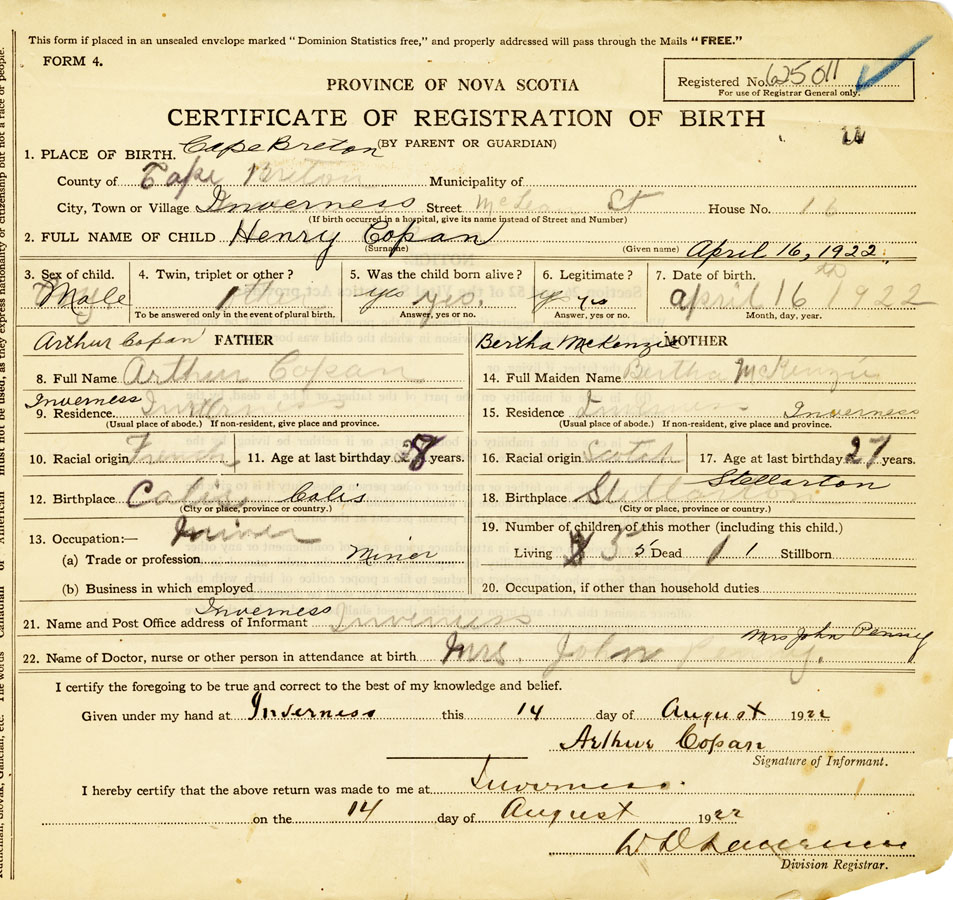 This form if placed in an unsealed envelope marked “Dominion Statistics free,” and properly addressed will pass through the Mails “FREE.”
FORM 4.
Registered No. 625011
For use of Registrar General only.
PROVINCE OF NOVA SCOTIA
CERTIFICATE OF REGISTRATION OF BIRTH
(BY PARENT OR GUARDIAN)
1. PLACE OF BIRTH. Cape Breton
County of Cape Breton Municipality of
City, Town or Village Inverness Street McLean St House No. 16
(If birth occurred in a hospital, give its name instead of Street and Number)
2. FULL NAME OF CHILD Henry Copan April 16, 1922.
(Surname) (Given name)
3. Sex of child. 4. Twin, triplet or other? 5. Was the child born alive? 6. Legitimate? 7. Date of birth.
Male yes yes. yes yes april 16 1922
To be answered only in the event of plural birth. Answer, yes or no. Answer, yes or no. Month, day, year.
Arthur Copan FATHER Bertha McKenzie MOTHER
8. Full Name Arthur Copan 14. Full Maiden Name Bertha McKenzie
Inverness
9. Residence. Inverness 15. Residence Inverness Inverness
(Usual place of abode.) If non-resident, give place and province. (Usual place of abode.) If non-resident, give place and province.
10. Racial origin French 11. Age at last birthday 28 years. 16. Racial origin Scotch 17. Age at last birthday 27 years.
12. Birthplace Calis Calis 18. Birthplace Stellarton Stellarton
(City or place, province or country.) (City or place, province or country.)
13. Occupation:— Miner 19. Number of children of this mother (including this child.)
(a) Trade or profession Miner Living 3 5 Dead 1 1 Stillborn
(b) Business in which employed 20. Occupation, if other than household duties
Inverness
21. Name and Post Office address of Informant Inverness
Mrs John Penney
22. Name of Doctor, nurse or other person in attendance at birth Mrs. John Penney.
I certify the foregoing to be true and correct to the best of my knowledge and belief.
Given under my hand at Inverness this 14 day of August 1922
Arthur Copan
Signature of Informant.
I hereby certify that the above return was made to me at Inverness.
on the 14 day of August 1922
Division Registrar.